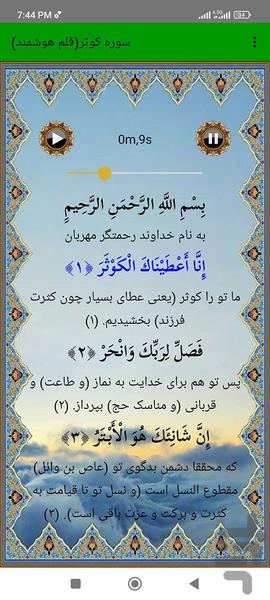 7:44 PM
سوره کوثر(قلم هوشمند)
0m,9s
بِسْمِ اللَّهِ الرَّحْمَنِ الرَّحِيمِ
به نام خداوند رحمتگر مهربان
إِنَّا أَعْطَيْنَاكَ الْكَوْثَرَ ﴿١﴾
ما تو را کوثر (یعنی عطای بسیار چون کثرت
فرزند) بخشیدیم. (۱)
فَصَلِّ لِرَبِّكَ وَانْحَرْ ﴿٢﴾
پس تو هم برای خدایت به نماز (و طاعت) و
قربانی (و مناسک حج) بپرداز. (۲)
إِنَّ شَانِئَكَ هُوَ الْأَبْتَرُ ﴿٣﴾
که محققا دشمن بدگوی تو (عاص بن وائل)
مقطوع النسل است (و نسل تو تا قیامت به
کثرت و برکت و عزت باقی است). (۳)